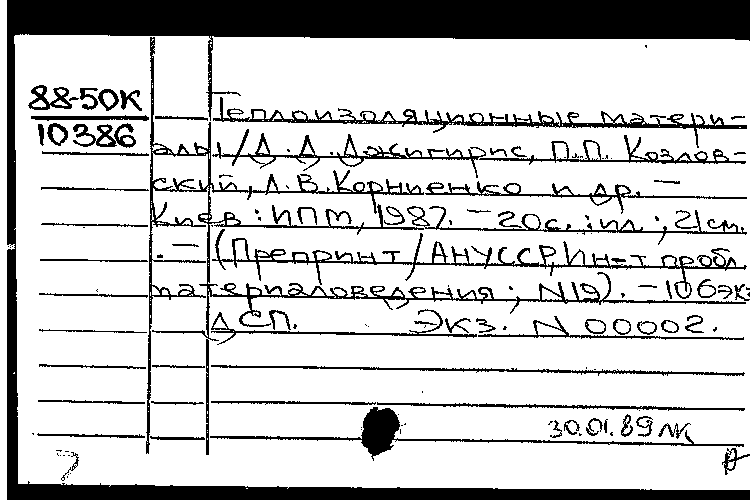 88-50К
10386
Теплоизоляционные матери-
алы/Д.Д.Джигирис, П.П. Козлов-
ский, Л.В.Корниенко и др. —
Киев: ИПМ, 1987. — 20с.: ил.; 21см.
. — (Препринт/АНУССР, Ин-т пробл.
материаловедения; N19). — 106экз
ДСП. Экз. N 00002.
30.01.89